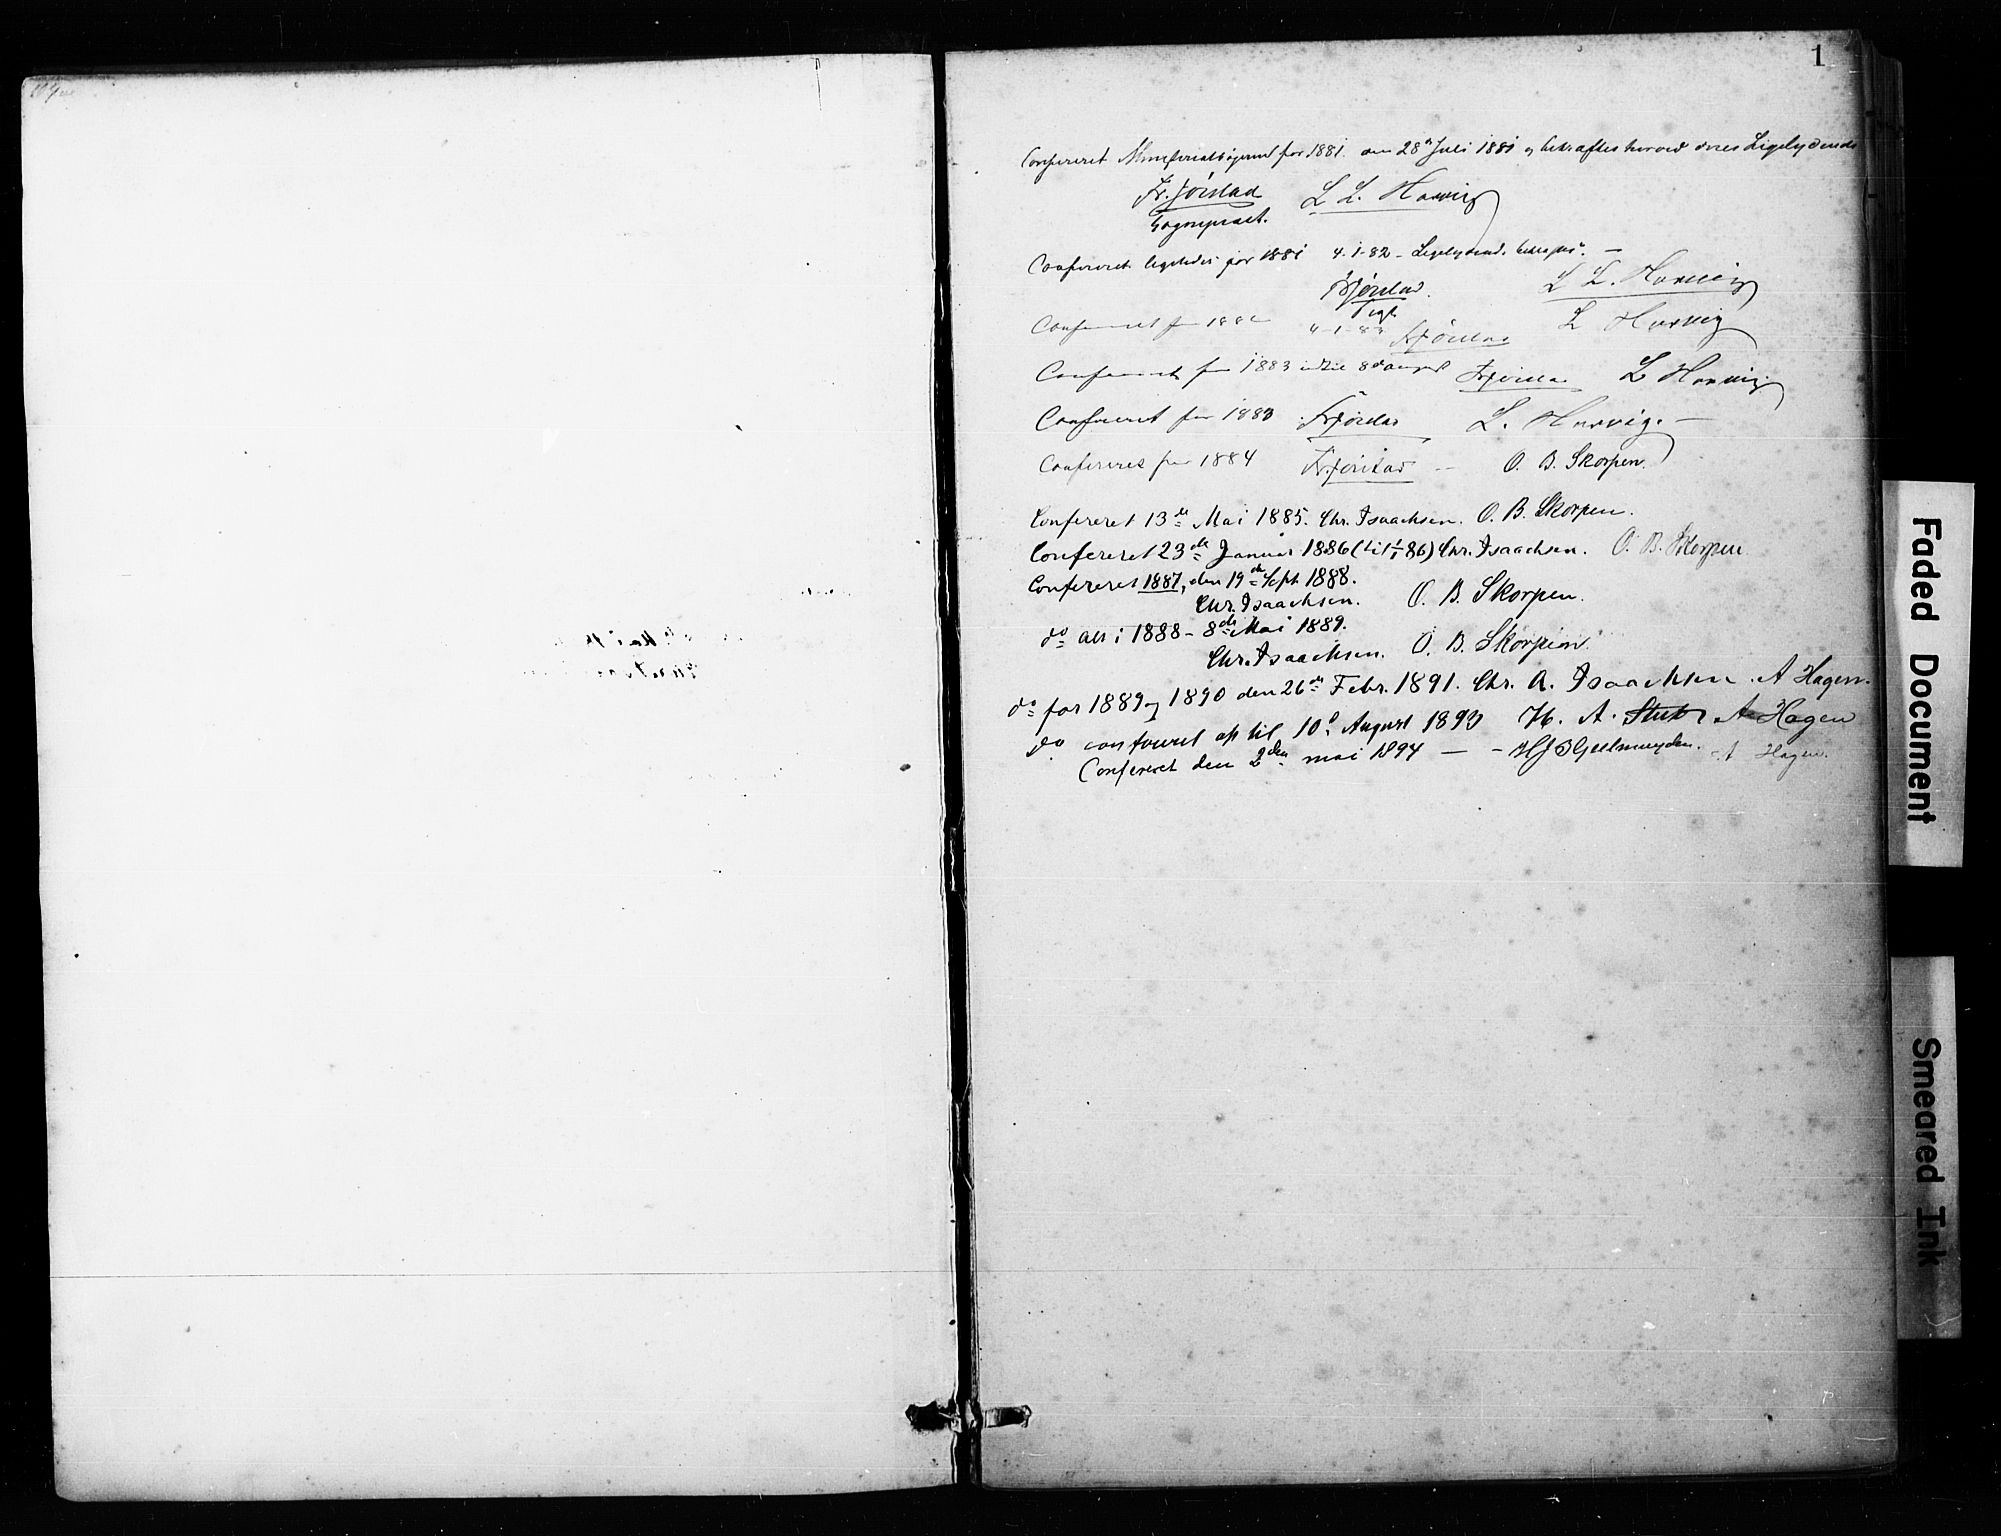 1
Confereret Ministerialbogen for 1881. den 28de Juli 1881 og bekræftes herved dens Ligelydende
Fr. Jørstad L L. Harvig
Sognepræst.
Confereret ligeledes for 1881 4-1-82 - Ligelydend. bekræftes. —
FrJørstad. L L. Harvig
Confereret for 1882 4-1-83 FrJørstad L Harvig
Confereret for 1883 indtil 8de august FrJørstad L Harvig
Confereret for 1883 FrJørstad L. Harvig. —
Confereret for 1884 Fr. Jørstad — O. B. Skorpen.
Confereret 13de Mai 1885. Chr. Isaachsen. O. B. Skorpen.
Confereret 23de Januar 1886 (til 1/1 86) Chr. Isaachsen. O. B. Skorpen
Confereret 1887, den 19de Sept 1888.
Chr. Isaachsen. O. B. Skorpen.
do alt i 1888 - 8de Mai 1889.
Chr. Isaachsen. O. B. Skorpen.
do for 1889 og 1890 den 26de Febr. 1891. Chr. A. Isaachsen. A Hagen.
do confereret alt til 10d August 1893 H. A. Stub A Hagen
Confereret den 2den mai 1894 — - HJBGeelmuyden. A Hagen.
Faded Document
Smeared Ink